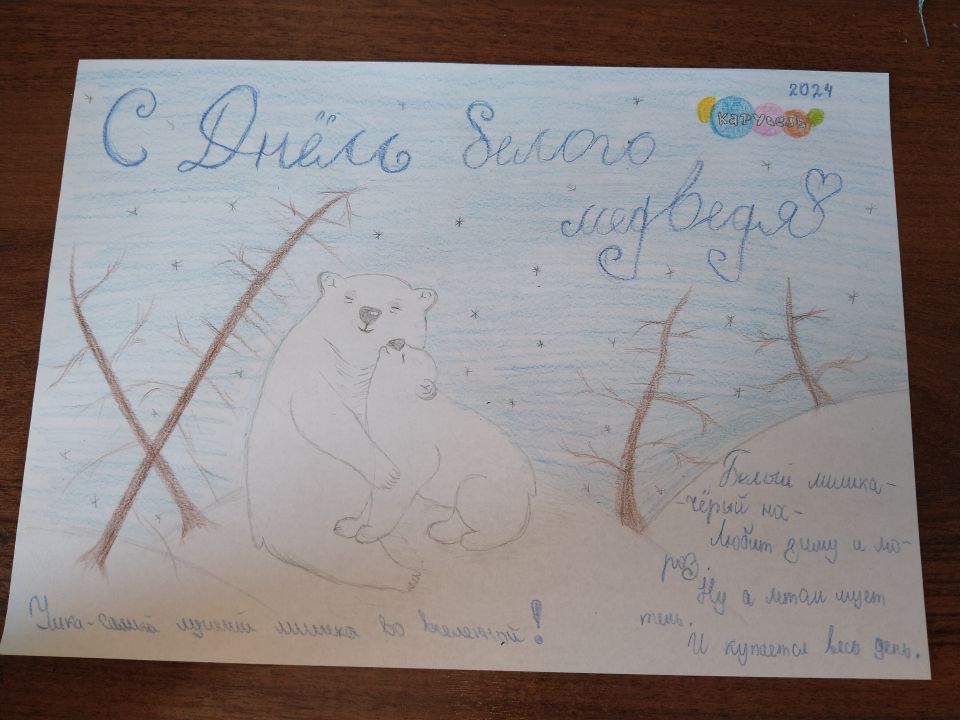 2024
КАРУСЕЛЬ
С Днёмъ белого
медведя
Белый мишка-
-чёрый на-
Любит зиму и мо-
роз.
Ну а летом ищет
тень.
И купается весь день.
Умка-самый лучший мишка во вселенной!